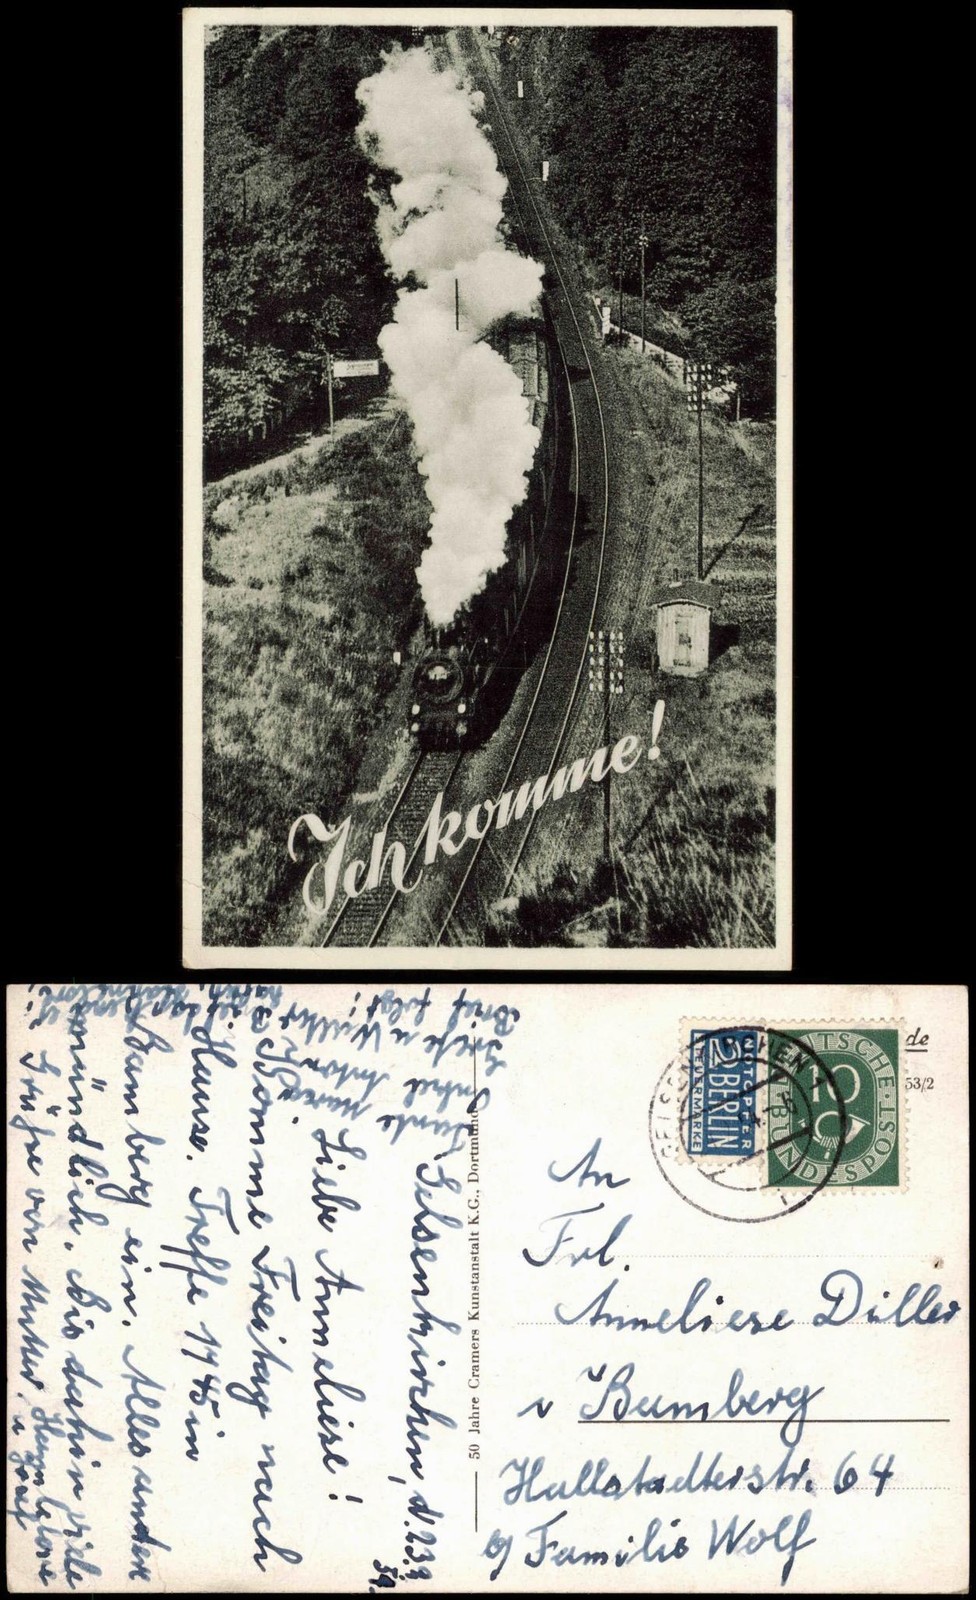 Ich komme!
Gelsenkirchen, d. 23.9.
54.
Liebe Anneliese!
Komme Freitag nach
Hause. Treffe 17 45 in
Bamberg ein. Alles andere
mündlich. Bis dahin viele
Grüße an Mutter
Tante Maria
Onkel Anton
Grüße u
Brief folgt!
50 Jahre Cramers Kunstanstalt K.G., Dortmund
de
53/2
NOTOPFER
2 BERLIN
STEUERMARKE
DEUTSCHE
10
BUNDESPOST
GELSENKIRCHEN 1
An
Frl.
Anneliese Düller
Bamberg
Hallstadterstr. 64
b/ Familie Wolf